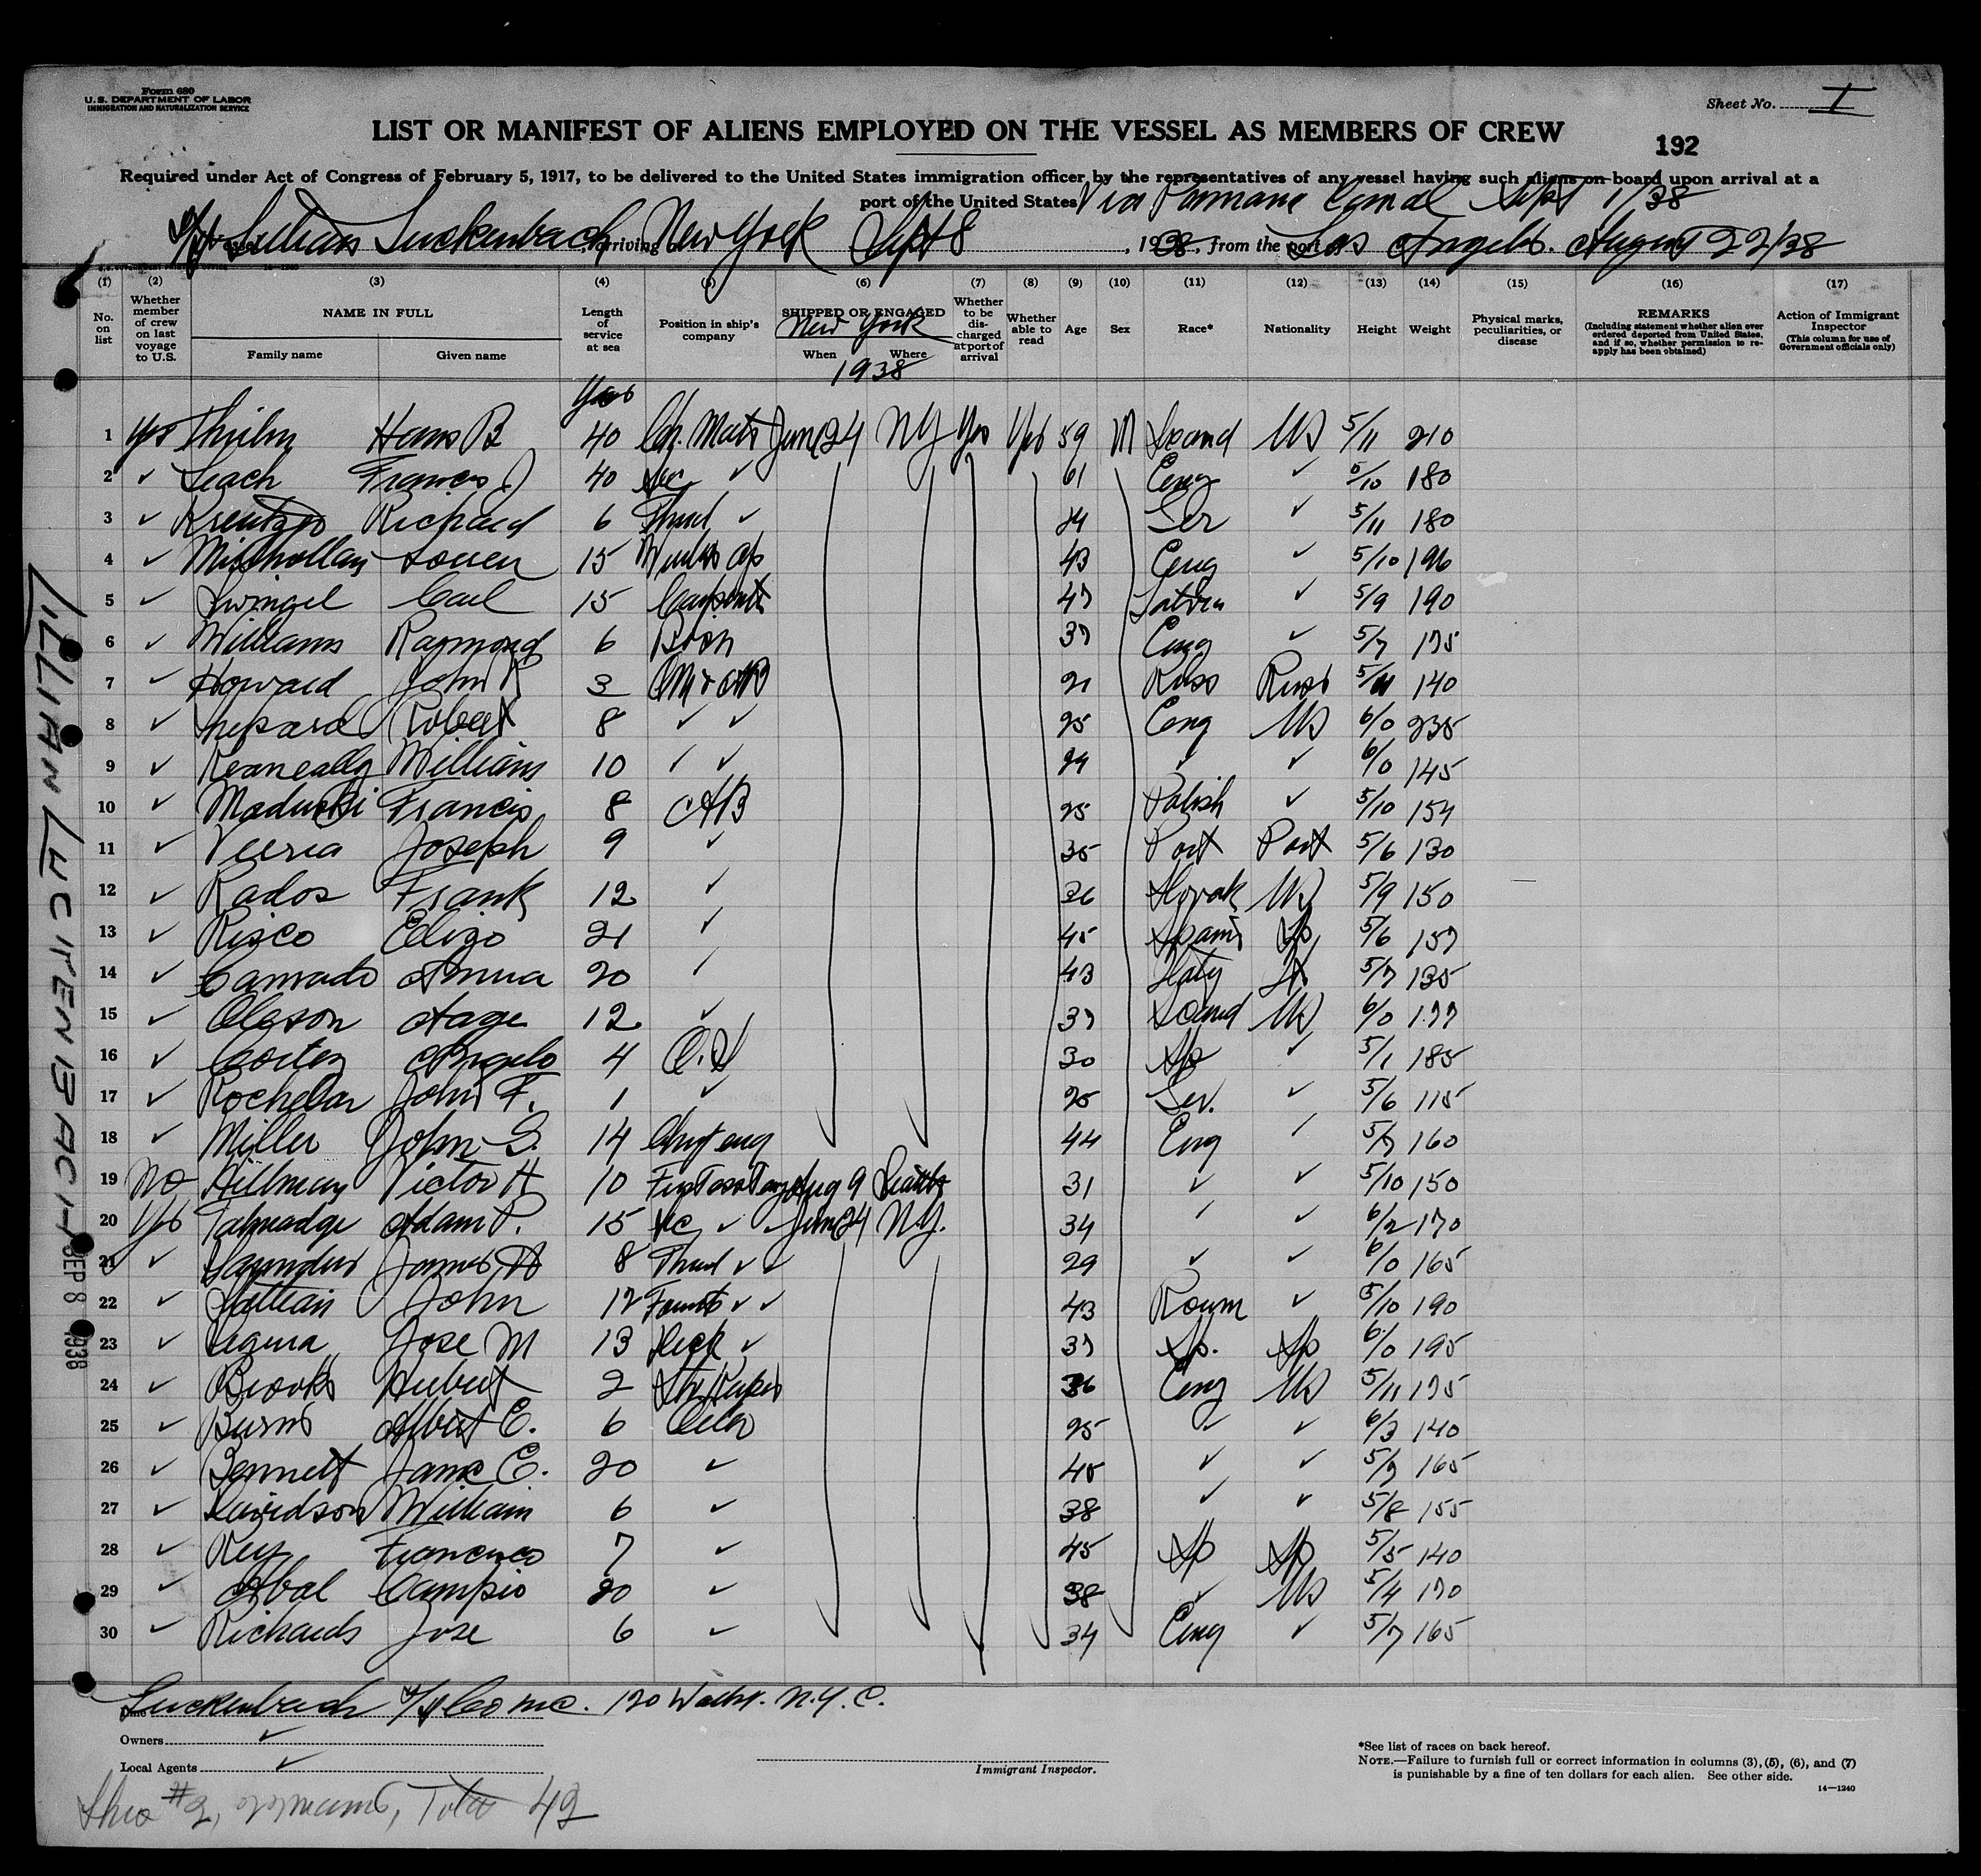 Form 680
U.S. DEPARTMENT OF LABOR
IMMIGRATION AND NATURALIZATION SERVICE
Sheet No. I
LIST OR MANIFEST OF ALIENS EMPLOYED ON THE VESSEL AS MEMBERS OF CREW
192
Required under Act of Congress of February 5, 1917, to be delivered to the United States immigration officer by the representatives of any vessel having such aliens on board upon arrival at a
port of the United States Via Panama Canal Sept 1/38
Lillian Luckenbach, arriving New York Sept 8, 1938, from the port of Los Angeles. August 22/38
(1) (2) (3) (4) (5) (6) (7) (8) (9) (10) (11) (12) (13) (14) (15) (16) (17)
No. on list
Whether member of crew on last voyage to U.S.
NAME IN FULL
Family name Given name
Length of service at sea
Position in ship's company
SHIPPED OR ENGAGED
New York
When Where
1938
Whether to be discharged at port of arrival
Whether able to read
Age
Sex
Race*
Nationality
Height
Weight
Physical marks, peculiarities, or disease
REMARKS
(Including statement whether alien ever ordered deported from United States, and if so, whether permission to reapply has been obtained)
Action of Immigrant Inspector
(This column for use of Government officials only)
Years
1 Yes Hans B 40 Ch. Mate June 24 NY Yes Yes 59 M Scand US 5/11 210
2 ✓ Leach Francis J 40 Sec ✓ 61 Eng ✓ 5/10 180
3 ✓ Richard 6 Third ✓ 24 Ger ✓ 5/11 180
4 ✓ Loren 15 43 Eng ✓ 5/10 196
5 ✓ Swingel Carl 15 Carpenter 47 Latvia ✓ 5/9 190
6 ✓ Williams Raymond 6 Bosn 37 Eng ✓ 5/7 175
7 ✓ Howard John 3 21 Russ Russ 140
8 ✓ Shepard Robert 8 ✓ ✓ 25 Eng US 6/0 235
9 ✓ Kenneally William 10 ✓ ✓ 29 ✓ ✓ 6/0 145
10 ✓ Francis 8 AB 25 Polish ✓ 5/10 154
11 ✓ Joseph 9 ✓ 35 Port Port 5/6 130
12 ✓ Rados Frank 12 ✓ 36 Slovak US 5/9 150
13 ✓ Risco Elizo 21 ✓ 45 Spanis Sp 5/6 157
14 ✓ 20 ✓ 43 Italy It 5/7 135
15 ✓ Oleson Aage 12 ✓ 37 Scand US 6/0 177
16 ✓ Cortez Angelo 4 O.S 30 Sp ✓ 5/1 185
17 ✓ John F. 1 ✓ 20 Ger. ✓ 5/6 115
18 ✓ Miller John G. 14 Chief eng 44 Eng ✓ 5/7 160
19 No Hillman Victor H 10 First Asst Eng Aug 9 Seattle 31 ✓ ✓ 5/10 150
20 Yes Talmadge Adam P. 15 Sec ✓ June 24 N.Y. 34 ✓ ✓ 6/2 170
21 ✓ Saunders James A 8 Third ✓ ✓ 29 ✓ ✓ 6/0 165
22 ✓ John 12 Fourth ✓ ✓ 43 Roum ✓ 5/10 190
23 ✓ Jose M 13 Deck ✓ 37 Sp. Sp 6/0 195
24 ✓ Brooks Hubert 2 36 Eng US 5/11 175
25 ✓ Burns Albert E. 6 Oiler 25 ✓ ✓ 6/3 140
26 ✓ Bennett E. 20 ✓ 45 ✓ ✓ 165
27 ✓ Davidson William 6 ✓ 38 ✓ ✓ 5/8 155
28 ✓ Rey Francisco 7 ✓ 45 Sp Sp 5/5 140
29 ✓ Abal Campio 20 ✓ 38 ✓ US 5/4 170
30 ✓ Richards Jose 6 ✓ 34 Eng ✓ 5/7 165
LILLIAN LUCKENBACH
SEP 8 1938
Luckenbach S/S Co Inc. 120 Wall St. N.Y.C.
Owners ✓
Local Agents ✓
Immigrant Inspector.
*See list of races on back hereof.
NOTE.—Failure to furnish full or correct information in columns (3), (5), (6), and (7)
is punishable by a fine of ten dollars for each alien. See other side.
14—1240
Total 42